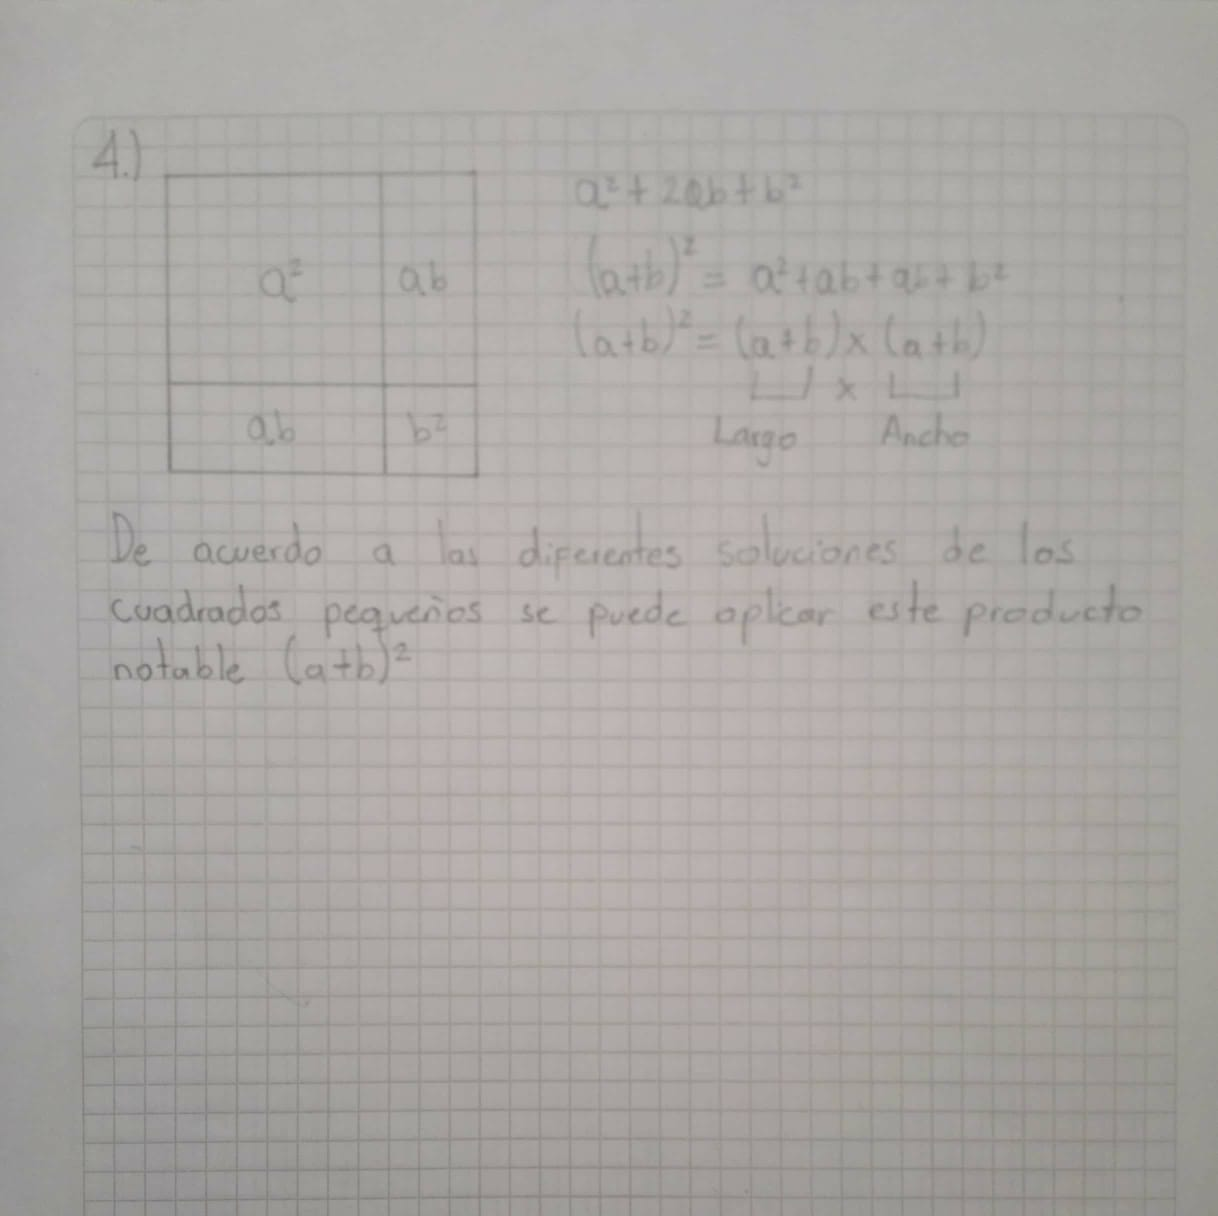 4.)
a² ab
ab b²
a²+2ab+b²
(a+b)² = a²+ab+ab+b²
(a+b)² = (a+b)x(a+b)
x
Largo Ancho
De acuerdo a las diferentes soluciones de los
cuadrados pequeños se puede aplicar este producto
notable (a+b)²